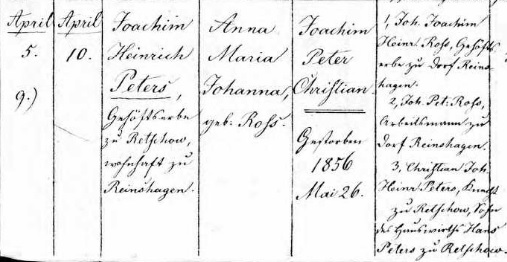 April
5.
9.)
April
10.
Joachim
Heinrich
Peters,
Gehöftserbe
zu Retschow,
wohnhaft zu
Reinshagen.
Anna
Maria
Johanna,
geb. Ross.
Joachim
Peter
Christian
Gestorben
1856
Mai 26.
1, Joh. Joachim
Heinr. Ross, Gehöfts
erbe zu Dorf Reins
hagen.
2, Joh. Pet. Ross,
Arbeitsmann zu
Dorf Reinshagen.
3, Christian Joh.
Heinr. Peters, Knecht
zu Retschow, Sohn
des Hauswirths Hans
Peters zu Retschow.